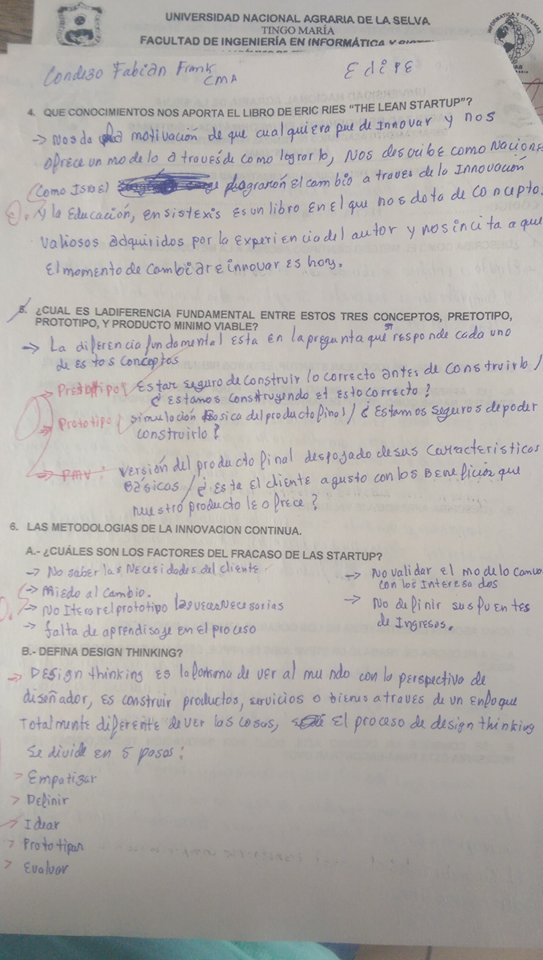 UNIVERSIDAD NACIONAL AGRARIA DE LA SELVA
TINGO MARÍA
FACULTAD DE INGENIERÍA EN INFORMÁTICA Y SISTEMAS
Condezo Fabian Frank
CMA
4. QUE CONOCIMIENTOS NOS APORTA EL LIBRO DE ERIC RIES "THE LEAN STARTUP"?
→ Nos da la motivación de que cualquiera puede Innovar y nos
ofrece un modelo a través de como lograrlo, Nos describe como Naciones
como Isrel plagraron el cambio a traves de la Innovación
y la Educación, en sistexis es un libro en el que nos dota de concepto.
valiosos adquiridos por la experiencia del autor y nos incita a que
el momento de cambiar e innovar es hoy.
5. ¿CUAL ES LADIFERENCIA FUNDAMENTAL ENTRE ESTOS TRES CONCEPTOS, PRETOTIPO,
PROTOTIPO, Y PRODUCTO MINIMO VIABLE?
→ La diferencia fundamental esta en la pregunta que responde cada uno
de estos conceptos
Pretotipo { Estar seguro de construir lo correcto antes de construirlo /
¿ Estamos construyendo esto correcto ?
Prototipo { simulación basica del producto final / ¿ Estamos seguros de poder
construirlo ?
PMV : versión del producto final despojado de sus características
Básicas / ¿ Esta el cliente agusto con los Beneficios que
nuestro producto le ofrece ?
6. LAS METODOLOGIAS DE LA INNOVACION CONTINUA.
A.- ¿CUÁLES SON LOS FACTORES DEL FRACASO DE LAS STARTUP?
→ No saber las Necesidades del cliente
→ Miedo al cambio.
→ No Iterar el prototipo las veces Necesarias
→ falta de aprendisaje en el proceso
→ No validar el modelo canva
con los Interesados
→ No definir sus fuentes
de Ingresos.
B.- DEFINA DESIGN THINKING?
→ DESign thinking es la forma de ver al mundo con la perspectiva de
diseñador, es construir productos, servicios o bienes atraves de un enfoque
totalmente diferente de ver las cosas, El proceso de design thinking
Se divide en 5 pasos :
> Empatizar
> Definir
> Idear
> Prototipar
> Evaluar